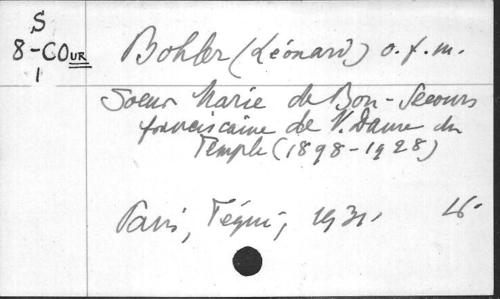 S
8-COUR
1
Bohler (Léonard) o.f.m.
Soeur Marie de Bon-Secours
franciscaine de N. Dame du
Temple (1898-1928)
Paris, Téqui, 1931, 16.